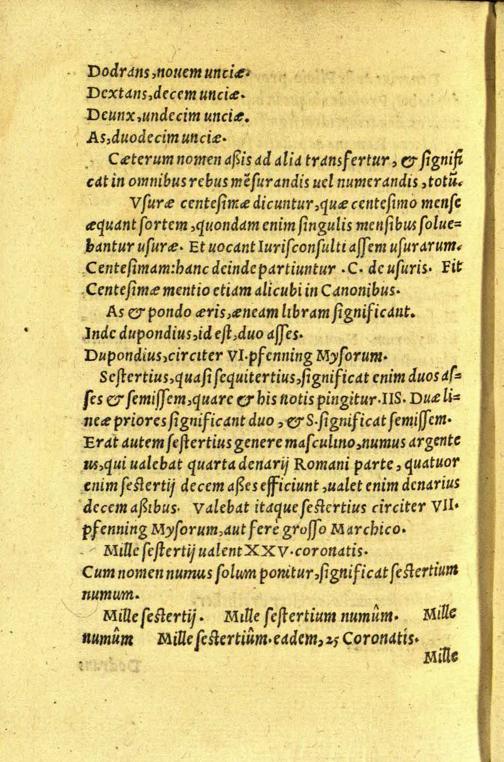 Dodrans, nouem unciæ.
Dextans, decem unciæ.
Deunx, undecim unciæ.
As, duodecim unciæ.
Cæterum nomen aßis ad alia transfertur, & signifi
cat in omnibus rebus mẽsurandis uel numerandis, totũ.
Vsuræ centesimæ dicuntur, quæ centesimo mense
æquant sortem, quondam enim singulis mensibus solue=
bantur usuræ. Et uocant Iurisconsulti assem usurarum.
Centesimam: hanc deinde partiuntur .C. de usuris. Fit
Centesimæ mentio etiam alicubi in Canonibus.
As & pondo æris, æneam libram significant.
Inde dupondius, id est, duo asses.
Dupondius, circiter VI. pfenning Mysorum.
Sestertius, quasi sequitertius, significat enim duos as=
ses & semissem, quare & his notis pingitur. IIS. Duæ li=
neæ priores significant duo, & S. significat semissem.
Erat autem sestertius genere masculino, numus argente
us, qui ualebat quarta denarij Romani parte, quatuor
enim sestertij decem aßes efficiunt, ualet enim denarius
decem aßibus. Valebat itaque sestertius circiter VII.
pfenning Mysorum, aut ferè grosso Marchico.
Mille sestertij ualent XXV. coronatis.
Cum nomen numus solum ponitur, significat sestertium
numum.
Mille sestertij. Mille sestertium numûm. Mille
numûm Mille sestertiûm. eadem, 25 Coronatis.
Mille